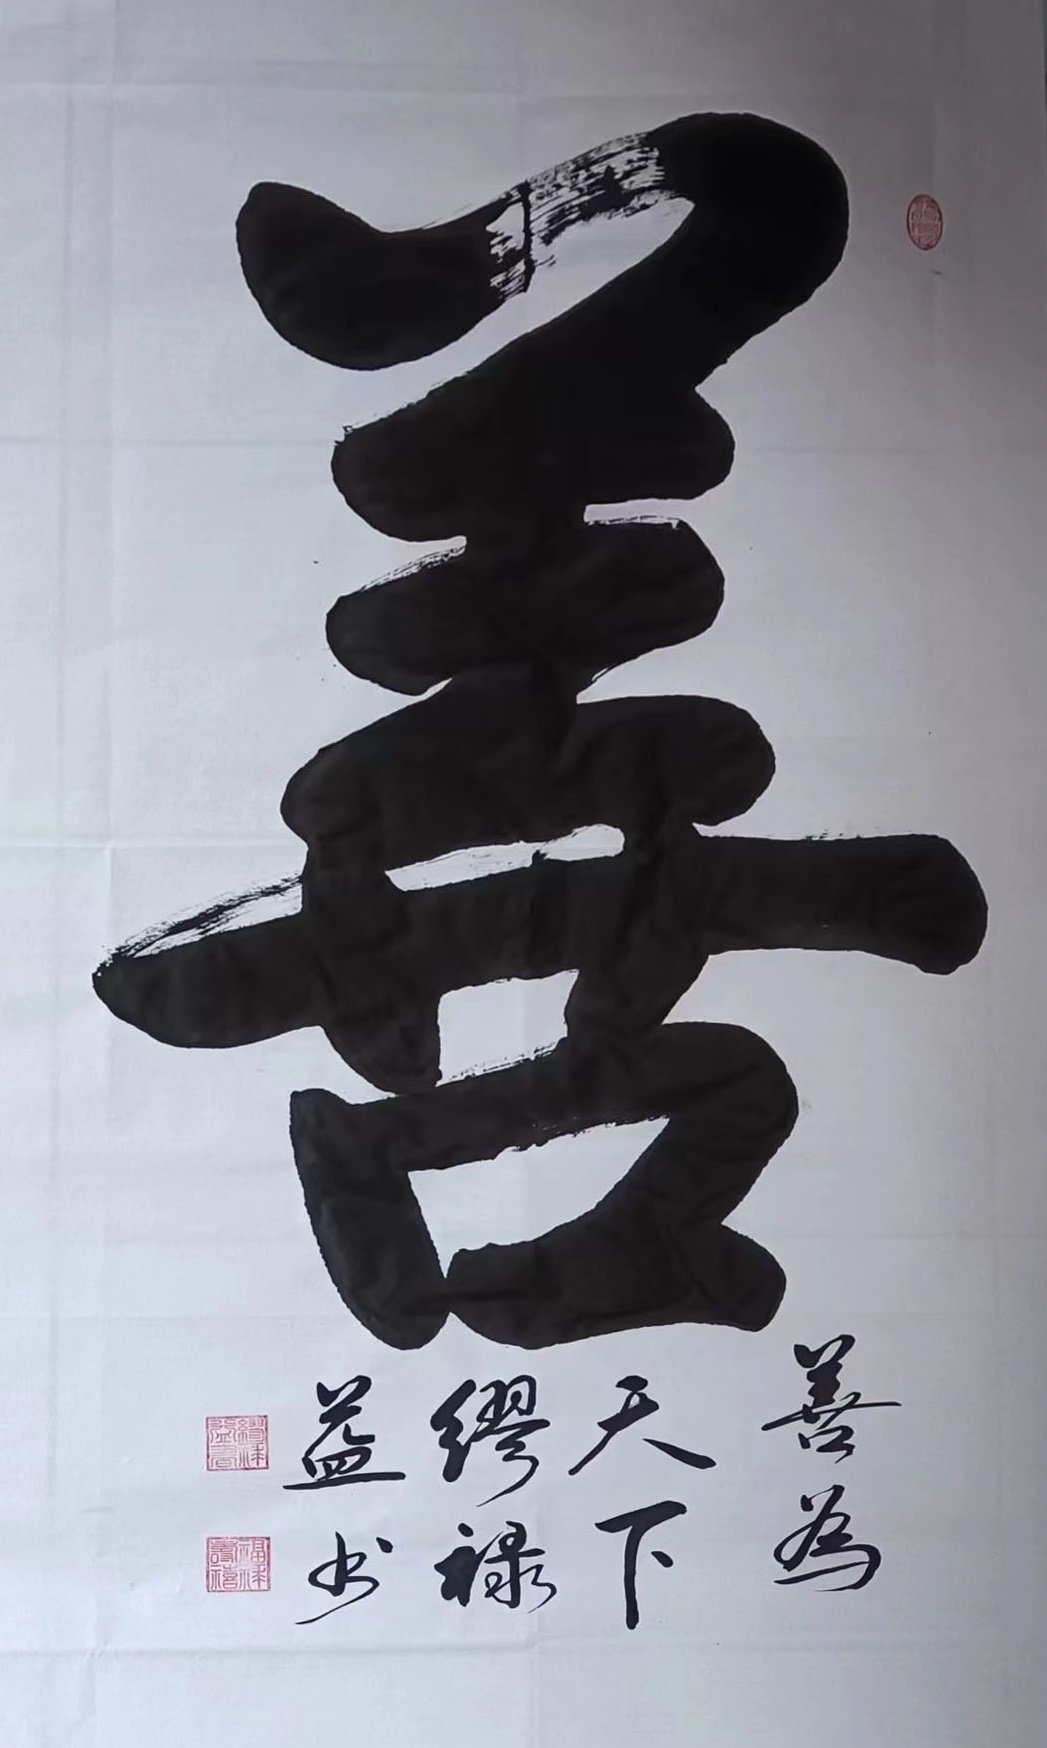 善
善為
天下
繆祿
益书